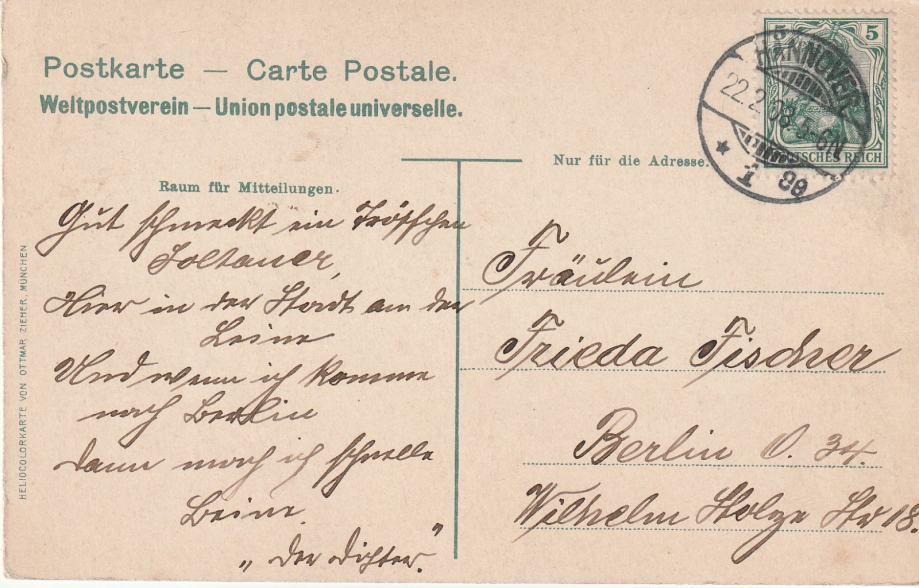 Postkarte — Carte Postale.
Weltpostverein — Union postale universelle.
5 5
HANNOVER
22.2.08.5-6N
* 1 gg
DEUTSCHES REICH
Nur für die Adresse.
Raum für Mitteilungen.
Gut schmeckt ein Tröpfchen
Soltauer,
Hier in der Stadt an der
Leine
Und wenn ich komme
nach Berlin
Dann mach ich schnelle
Beine.
„Der Dichter."
Fräulein
Frieda Fischer
Berlin O. 34.
Wilhelm Stolze Str 18.
HELIOCOLORKARTE VON OTTMAR ZIEHER, MÜNCHEN